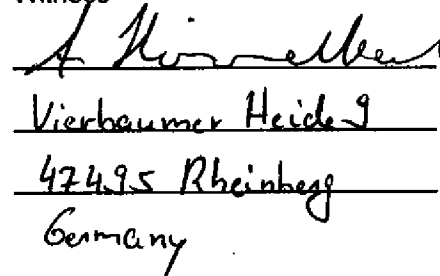 Witness
Vierbaumer Heide 9
47495 Rheinberg
Germany